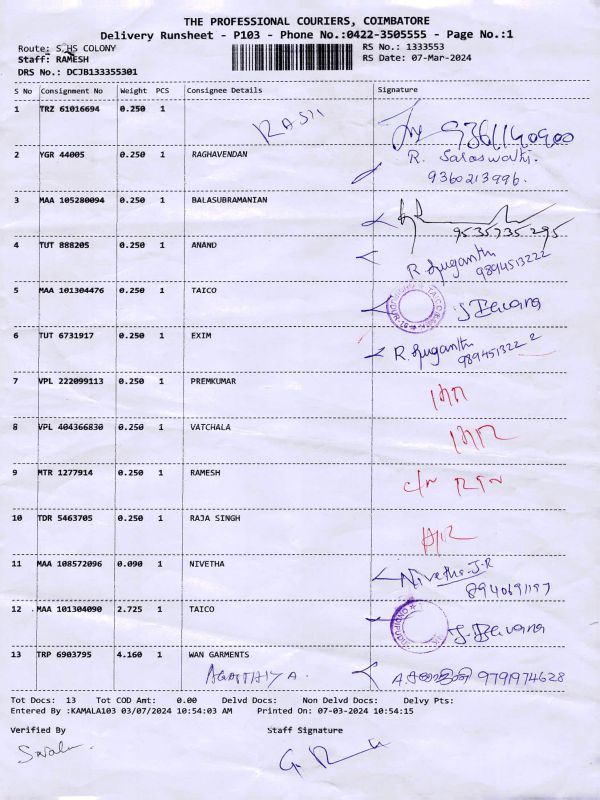 THE PROFESSIONAL COURIERS, COIMBATORE
Delivery Runsheet - P103 - Phone No.:0422-3505555 - Page No.:1
Route: S.HS COLONY
RS No.: 1333553
Staff: RAMESH
RS Date: 07-Mar-2024
DRS No.: DCJB133355301
S No Consignment No Weight PCS Consignee Details Signature
1 TRZ 61016694 0.250 1 9361140900
2 YGR 44005 0.250 1 RAGHAVENDAN R. Saraswathi.
9360213996.
3 MAA 105280094 0.250 1 BALASUBRAMANIAN
9535735295
4 TUT 888205 0.250 1 ANAND R Suganthi
9894513222
5 MAA 101304476 0.250 1 TAICO
6 TUT 6731917 0.250 1 EXIM R. Suganthi
9894513222
7 VPL 222099113 0.250 1 PREMKUMAR
8 VPL 404366830 0.250 1 VATCHALA
9 MTR 1277914 0.250 1 RAMESH
10 TDR 5463705 0.250 1 RAJA SINGH
11 MAA 108572096 0.090 1 NIVETHA Nivetha.J.R
8940691197
12 MAA 101304090 2.725 1 TAICO
13 TRP 6903795 4.160 1 WAN GARMENTS
9791974628
Tot Docs: 13 Tot COD Amt: 0.00 Delvd Docs: Non Delvd Docs: Delvy Pts:
Entered By :KAMALA103 03/07/2024 10:54:03 AM Printed On: 07-03-2024 10:54:15
Verified By Staff Signature